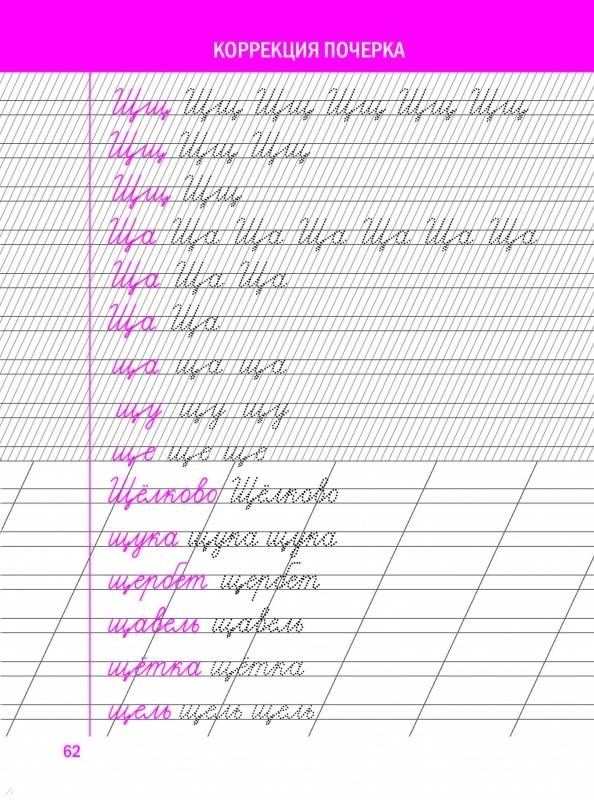 КОРРЕКЦИЯ ПОЧЕРКА
Щщ Щщ Щщ Щщ Щщ Щщ
Щщ Щщ Щщ
Щщ Щщ
Ща Ща Ща Ща Ща Ща Ща
Ща Ща Ща
Ща Ща
ща ща ща
щу щу щу
ще ще ще
Щёлково Щёлково
щука щука щука
щербет щербет
щавель щавель
щётка щётка
щель щель щель
62